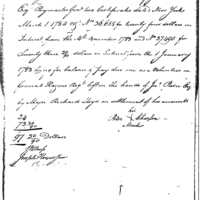 Esqr Paymaster Genl two Certificates dated New York
March 1 1784 no. No 36655 for twenty four dollars on
Interest from the 4th November 1783 and No 37490 for
Seventy three 30/90 dollars on Interest from the 1 January
1783 my for balance of pay due me as Volunteer in
General Hazens Regt left in the hands of Jno Pierce Esq
by Major Richard Lloyd on settlement of his accounts
his
mark
24
73 30/90
97 30/90 Dollars
Witness
Joseph